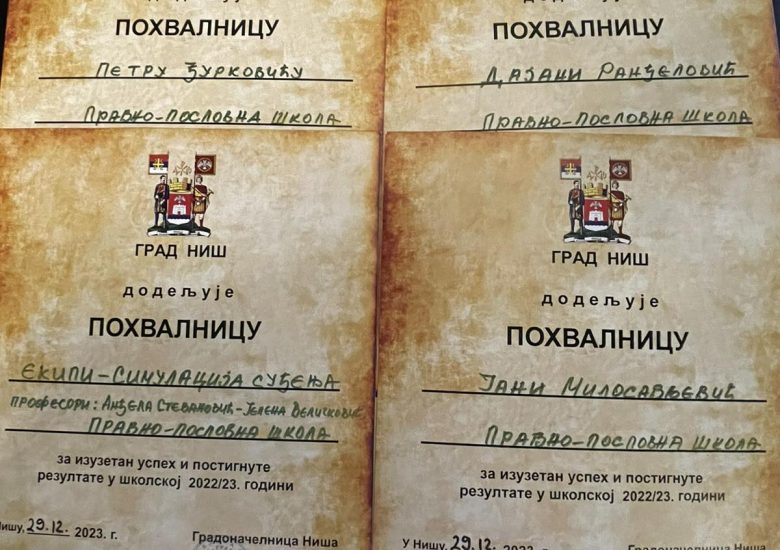 додељује
ПОХВАЛНИЦУ
ПЕТРУ ЂУРКОВИЋУ
ПРАВНО-ПОСЛОВНА ШКОЛА
додељује
ПОХВАЛНИЦУ
ДАЈАНИ РАНЂЕЛОВИЋ
ПРАВНО-ПОСЛОВНА ШКОЛА
ГРАД НИШ
додељује
ПОХВАЛНИЦУ
ЕКИПИ-СИМУЛАЦИЈА СУЂЕЊА
ПРОФЕСОРИ: АНЂЕЛА СТЕВАНОВИЋ-ЈЕЛЕНА ВЕЛИЧКОВИЋ
ПРАВНО-ПОСЛОВНА ШКОЛА
за изузетан успех и постигнуте
резултате у школској 2022/23. години
Нишу, 29.12. 2023. г.
Градоначелница Ниша
ГРАД НИШ
додељује
ПОХВАЛНИЦУ
ЈАНИ МИЛОСАВЉЕВИЋ
ПРАВНО-ПОСЛОВНА ШКОЛА
за изузетан успех и постигнуте
резултате у школској 2022/23. години
У Нишу, 29.12. 2023. г.
Градоначелница Ниша